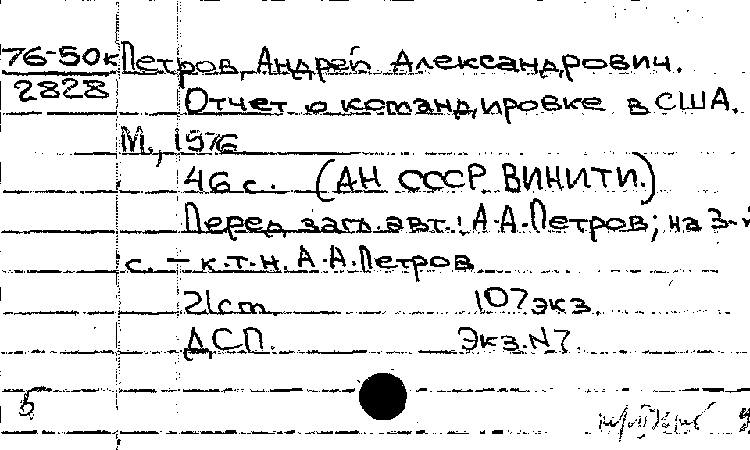 76-50к Петров, Андрей Александрович.
2828 Отчет о командировке в США.
М., 1976
46 с. (АН СССР. ВИНИТИ.)
Перед загл. авт.: А.А.Петров; на 3-й
с. – к.т.н. А.А.Петров
21см. 107экз.
ДСП. Экз.N7.
б